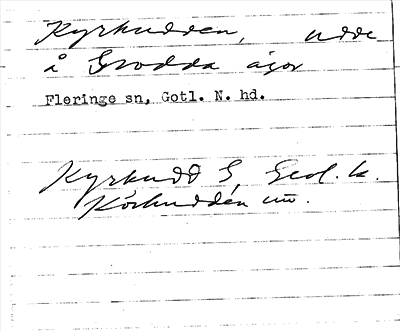 Kyrkudden, udde
å Grodda ägor
Fleringe sn, Gotl. N. hd.
Kyrkudd G, Geol. k.